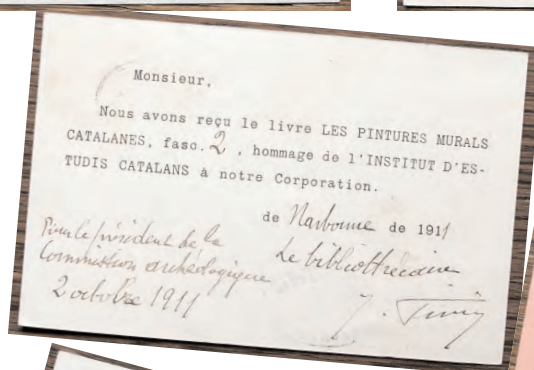 Monsieur,
Nous avons reçu le livre LES PINTURES MURALS
CATALANES, fasc. 2 , hommage de l'INSTITUT D'ES-
TUDIS CATALANS à notre Corporation.
de Narbonne de 1911
Pour le président de la
Commission archéologique
2 octobre 1911
Le bibliothécaire
J.